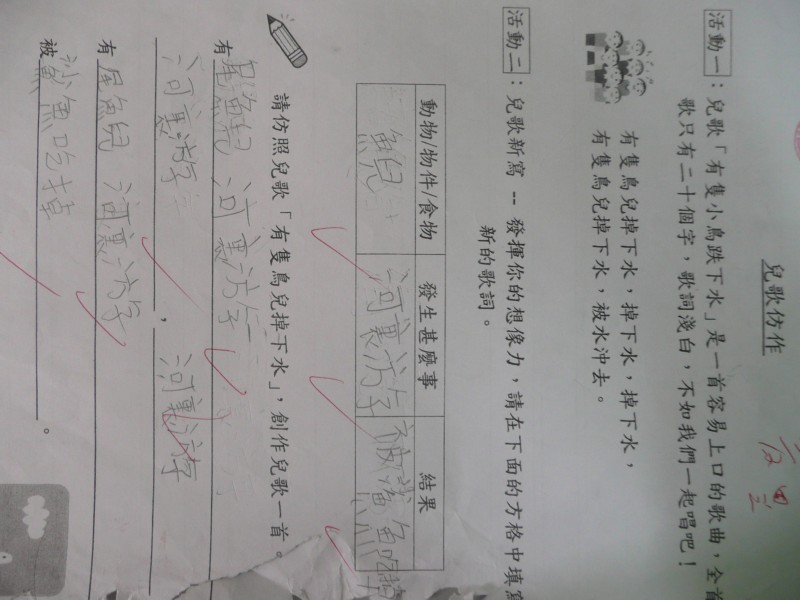 兒歌仿作
活動一：兒歌「有隻小鳥跌下水」是一首容易上口的歌曲，全首
歌只有二十個字，歌詞淺白，不如我們一起唱吧！
有隻鳥兒掉下水，掉下水，掉下水，
有隻鳥兒掉下水，被水沖去。
活動二：兒歌新寫 -- 發揮你的想像力，請在下面的方格中填寫
新的歌詞。
動物/物件/食物 發生甚麼事 結果
魚兒 河裏游字 被鯊魚吃掉
請仿照兒歌「有隻鳥兒掉下水」，創作兒歌一首。
有 尾魚兒 河裏游字
河裏游字，河裏游字
有尾魚兒 河裏游字
被鯊魚吃掉。